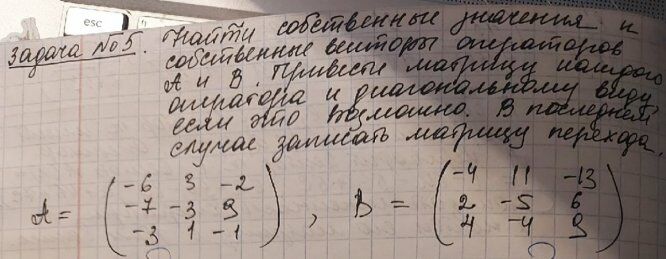 esc
Задача №5. Найти собственные значения и
собственные векторы операторов
A и B. Привести матрицу каждого
оператора к диагональному виду
если это возможно. В последнем
случае записать матрицу перехода.
A = ( -6 3 -2 ) , B = ( -4 11 -13 )
( -7 -3 9 ) ( 2 -5 6 )
( -3 1 -1 ) ( 4 -4 9 )